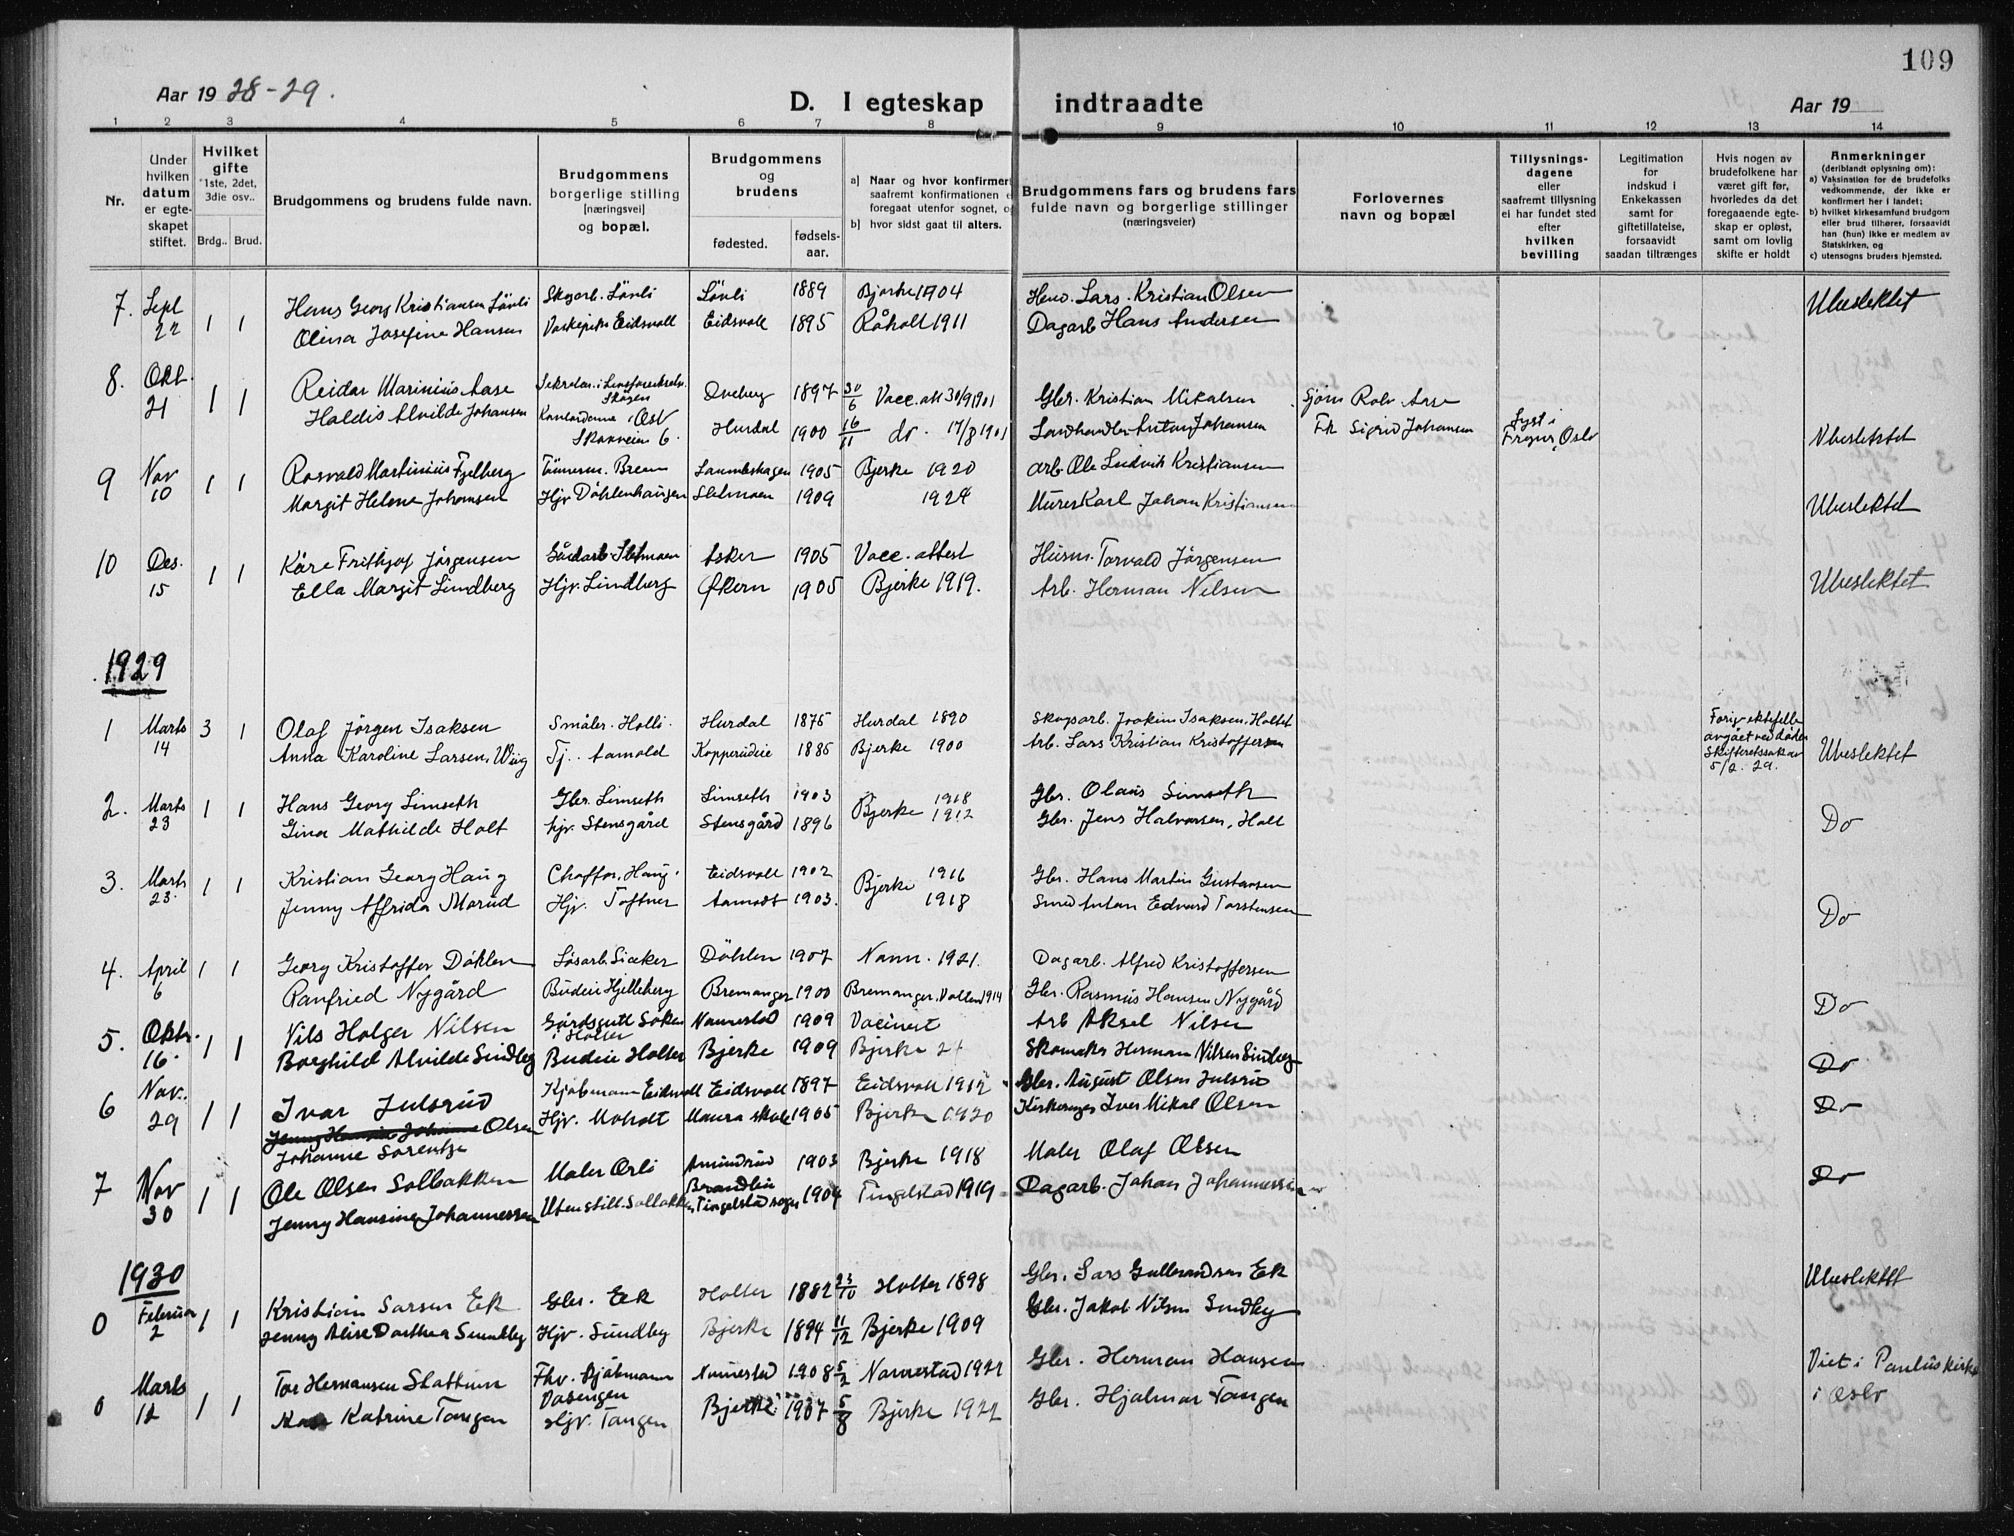 109
Aar 19 28-29.
D. I egteskap indtraadte
Aar 19
1 2 3 4 5 6 7 8 9 10 11 12 13 14
Nr.
Under hvilken datum er egte- skapet stiftet.
Hvilket gifte
1ste, 2det, 3die osv..
Brdg.. Brud.
Brudgommens og brudens fulde navn.
Brudgommens borgerlige stilling [næringsvei] og bopæl.
Brudgommens og brudens
fødested.
fødsels- aar.
a) Naar og hvor konfirmer
saafremt konfirmationen
foregaat utenfor sognet,
b) hvor sidst gaat til alters.
Brudgommens fars og brudens fars
fulde navn og borgerlige stillinger
(næringsveier)
Forlovernes navn og bopæl
Tillysnings- dagene eller saafremt tillysning ei har fundet sted efter hvilken bevilling
Legitimation for indskud i Enkekassen samt for giftetillatelse, forsaavidt saadan tiltrænges
Hvis nogen av brudefolkene har været gift før, hvorledes da det foregaaende egte- skap er opløst, samt om lovlig skifte er holdt
Anmerkninger
(deriblandt oplysning om):
a) Vaksination for de brudefolks vedkommende, der ikke er konfirmert her i landet;
b) hvilket kirkesamfund brudgom eller brud tilhører, forsaavidt han (hun) ikke er medlem av Statskirken, og
c) utensogns bruders hjemsted.
7. Sept 22 1 1 Hans Georg Kristiansen Lövli Skogarb. Lövli Lövli 1889 Bjerke 1904 Lars Kristian Olsen Ubeslektet
Olina Josefine Hansen Eidsvoll Eidsvoll 1895 Råholt 1911 Dagarb Hans Andersen
8. Okt. 21 1 1 Reidar Marinius Aase Skøyen 1897 30/6 Vacc. att 30/9 1901 Gbr. Kristian Mikalsen Sjøm Rolv Aase
Haldis Alvilde Johansen Hurdal 1900 16/11 do. 17/8 1901 Landhandler Anton Johansen Fr. Sigrid Johansen Lyst i Frogner, Oslo Ubeslektet
9 Nov 10 1 1 Rosvald Martinius Fjelberg 1905 Bjerke 1920 Arb. Ole Ludvik Kristiansen
Margit Helene Johansen Hjv Döhlenhaugen Sletmoen 1909 1924 Murer Karl Johan Kristiansen Ubeslektet
10 Des. 15 1 1 Kåre Frithjof Jörgensen Gårdarb Sletmoen Asker 1905 Vacc. attest Husm. Torvald Jörgensen
Ella Margit Lindberg Hjv. Lindberg Økern 1905 Bjerke 1919. Arb. Herman Nilsen Ubeslektet
1929
1 Marts 14 3 1 Olaf Jörgen Isaksen Småbr. Holli. Hurdal 1875 Hurdal 1890 Skogsarb. Joakim Isaksen, Holtet Forig. ektefelle avgået ved döden Skifteretssak av 5/2. 29.
Anna Karoline Larsen, Wiig Tj. Aamold 1885 Bjerke 1900 Arb. Lars Kristian Kristoffersen Ubeslektet
2. Marts 23 1 1 Hans Georg Limseth Gbr. Limseth Limseth 1903 Bjerke 1918 Gbr. Olaus Limseth
Gina Mathilde Holt hjv. Stensgård Stensgård 1896 1912 Gbr. Jens Halvorsen, Holt Do
3. Marts 23. 1 1 Kristian Georg Haug Chaffør, Haug. Eidsvoll 1902 Bjerke 1916 Gbr. Hans Martin Gustavsen
Jenny Alfrida Morud Hjv. Toftner Aamodt 1903. 1918 Smed Anton Edvard Torstensen Do
4. April 6 1 1 Georg Kristoffer Döhlen Lösarb. Döhlen 1907 Nann. 1921. Dagarb. Alfred Kristoffersen
Ranfried Nygård Budeie Hjelleberg Bremanger 1900 Bremanger. 1914 Gbr. Rasmus Hansen Nygård Do
5. Oktr. 16. 1 1 Nils Holger Nilsen Gårdsgutt Holter Nannestad 1909 Vacinert Arb Aksel Nilsen
Borghild Alvilde Sindby Budeie Holter Bjerke 1909 Bjerke 24 Skomaker Herman Nilsen Do
6 Nov. 29 1 1 Ivar Julsrud Kjöbmann Eidsvoll Eidsvoll 1897 Eidsvoll 1912 Gbr. August Olsen Julsrud
Johanne Sorentze Olsen Hjv. Moholt Maura skole 1905 Bjerke 1920 Iver Mikal Olsen Do
7 Nov 30 1 1 Ole Olsen Solbakken Maler Orli Amundrud 1903 Bjerke 1918 Maler Olaf Olsen
Jenny Hansine Johannessen Solbakken Brandbu Tingelstad sogn 1904 Tingelstad 1919 Dagarb. Johan Johannessen Do
1930
0 Februar 2 1 1 Kristian Larsen Ek Gbr. Ek Holter 1882 23/10 Holter 1898 Gbr. Lars Gulbrandsen Ek Ubeslektet
Jenny Alise Dorthea Sundby Hjv. Sundby Bjerke 1894 11/12 Bjerke 1909 Gbr. Jakob Nilsen Sundby
0 Marts 12 1 1 Tor Hermansen Slattum Fhv. Kjöbmann Vasengen Nannestad 1908 5/2 Nannestad 1922 Gbr. Herman Hansen Viet i Paulus kirke
Katrine Tangen Hjv. Tangen Bjerke 1907 5/8 Bjerke 1922 Gbr. Hjalmar Tangen i Oslo